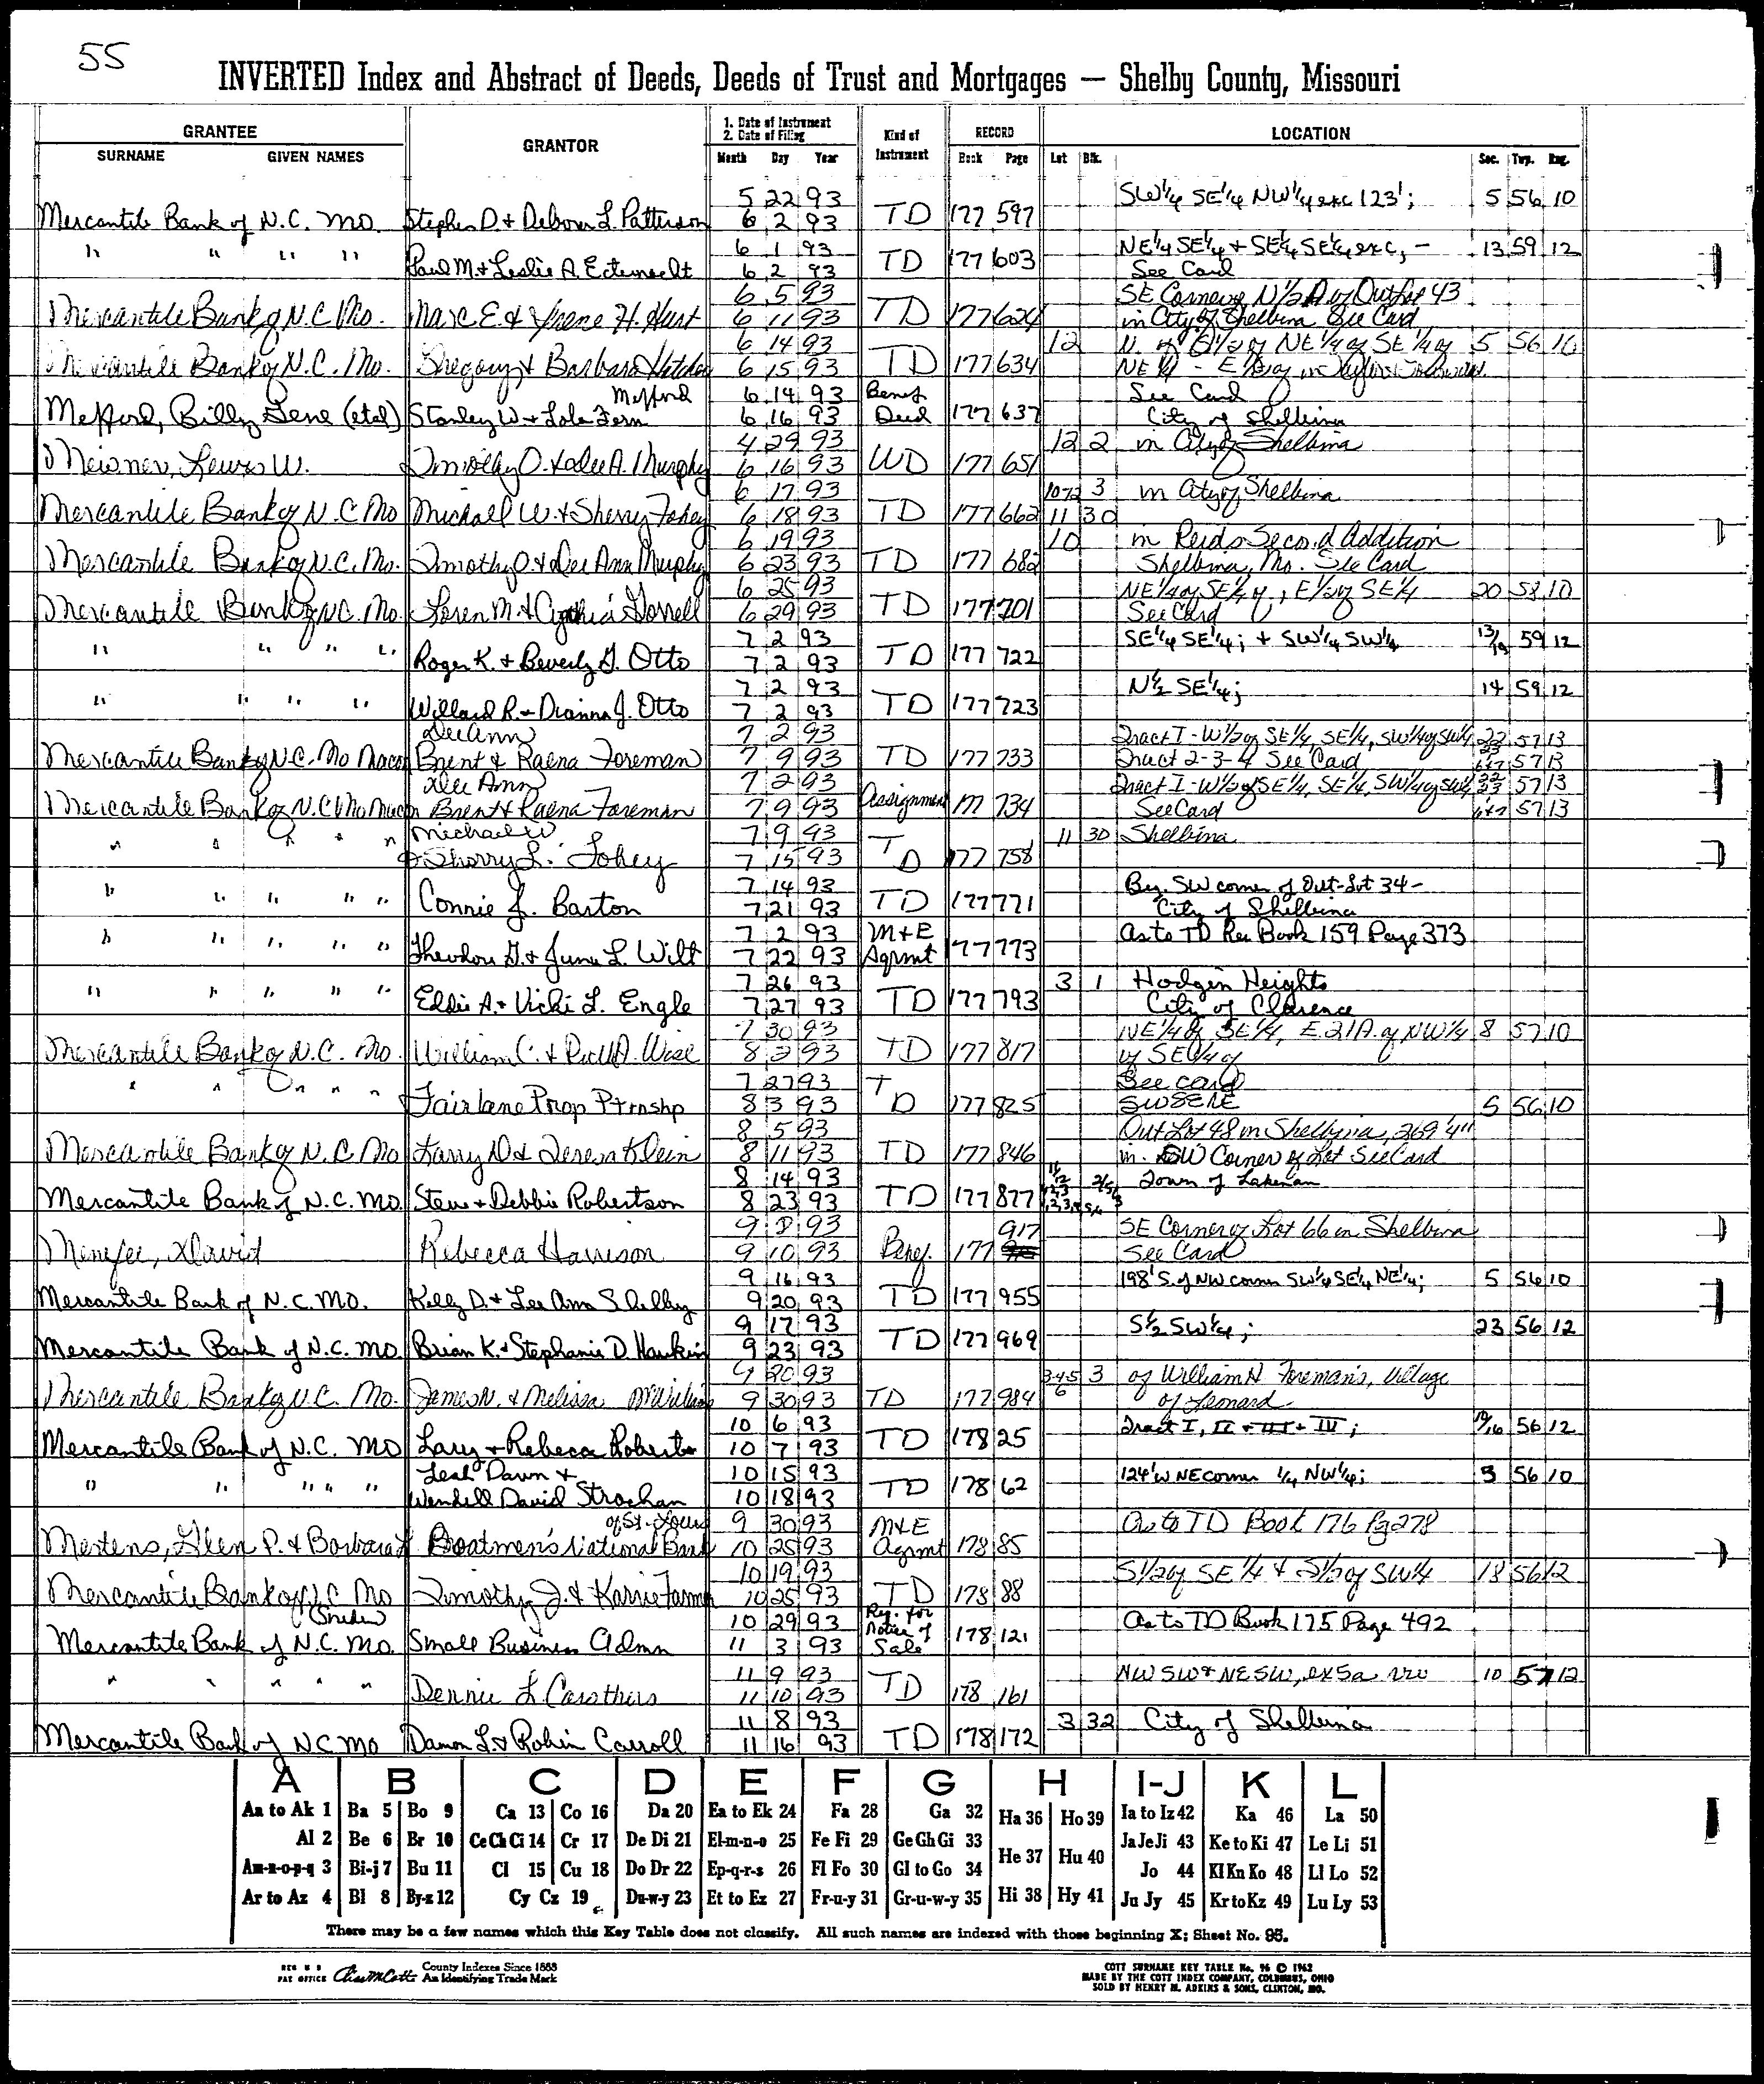 55
INVERTED Index and Abstract of Deeds, Deeds of Trust and Mortgages — Shelby County, Missouri
GRANTEE GRANTOR 1. Date of Instrument 2. Date of Filing Kind of Instrument RECORD LOCATION
SURNAME GIVEN NAMES Month Day Year Book Page Lot Blk. Sec. Twp. Rng.
5 22 93 SW1/4 SE1/4 NW1/4 exc 123'; 5 56 10
Mercantile Bank of N.C. Mo. Stephen D. & Debora L. Patterson 6 2 93 TD 177 597
6 1 93 NE1/4 SE1/4 + SE1/4 SE1/4 exc, - 13 59 12
" " " " Paul M. & Leslie A. Echternacht 6 2 93 TD 177 603 See Card
6 5 93 SE Corner of N1/2 A of Outlot 43
Mercantile Bank of N.C. Mo. Marc E. & Yvene H. Hurt 6 11 93 TD 177 624 in City of Shelbina See Card
6 14 93 12 N. of S1/2 of NE1/4 of SE1/4 of 5 56 10
Mercantile Bank of N.C. Mo. Gregory & Barbara 6 15 93 TD 177 634 NE1/4 - E1/2 of in
Mefford 6 14 93 Benef See Card
Mefford, Billy Gene (etal) Stanley W & Lola Fern 6 16 93 Deed 177 637 City of Shelbina
4 29 93 12 2 in City of Shelbina
Meisner, Lewis W. Timothy O. & Dee A. Murphy 6 16 93 WD 177 651
6 17 93 3 in City of Shelbina
Mercantile Bank of N.C. Mo Michall W. & Sherry Fohey 6 18 93 TD 177 662 11 30
6 19 93 10 in Reids Second Addition
Mercantile Bank of N.C. Mo. Timothy O. & Dee Ann Murphy 6 23 93 TD 177 682 Shelbina, Mo. See Card
6 25 93 NE1/4 of SE1/4 of, E1/2 of SE1/4 20 58 10
Mercantile Bank of N.C. Mo. Loren M. & Cynthia Gorrell 6 29 93 TD 177 701 See Card
7 2 93 SE1/4 SE1/4; + SW1/4 SW1/4 59 12
" " " " Roger K. & Beverly G. Otto 7 2 93 TD 177 722
7 2 93 N1/2 SE1/4; 14 59 12
" " " " Willard R. & Dianna J. Otto 7 2 93 TD 177 723
DeeAnn 7 2 93 Tract I - W1/2 of SE1/4, SE1/4, SW1/4 of SW1/4 57 13
Mercantile Bank of N.C. Mo Macon Brent & Raena Foreman 7 9 93 TD 177 733 Tract 2-3-4 See Card 6&7 57 13
Dee Ann 7 2 93 Tract I - W1/2 of SE1/4, SE1/4, SW1/4 of SW1/4 57 13
Mercantile Bank of N.C. Mo Macon Brent & Raena Foreman 7 9 93 Assignment 177 734 See Card 6&7 57 13
Michael W 7 9 93 11 30 Shelbina
" " " " " & Sherry L. Fohey 7 15 93 TD 177 758
7 14 93 Beg. SW corner of Out-Lot 34-
" " " " " Connie J. Barton 7 21 93 TD 177 771 City of Shelbina
7 2 93 M+E As to TD Rec Book 159 Page 373
" " " " " Theodore G. & June L. Wilt 7 22 93 Agrmt 177 773
7 26 93 3 1 Hodgin Heights
" " " " " Eddie A. & Vicki L. Engle 7 27 93 TD 177 793 City of Clarence
7 30 93 NE1/4 of SE1/4, E. 21A. of NW1/4 8 57 10
Mercantile Bank of N.C. Mo. William C. & A. Wisl 8 2 93 TD 177 817 of SE1/4 of
7 27 93 See card
" " " " " Fairlane Prop Ptrnshp 8 3 93 TD 177 825 SWSENE 5 56 10
8 5 93 Out Lot 48 in Shelbina, 269'4"
Mercantile Bank of N.C. Mo Larry D & Teresa Klein 8 11 93 TD 177 846 in. SW Corner of Lot See Card
8 14 93 Town of Lakenan
Mercantile Bank of N.C. Mo. Steve & Debbie Robertson 8 23 93 TD 177 877
9 8 93 917 SE Corner of Lot 66 in Shelbina
Menefee, David Rebecca Harrison 9 10 93 Benef. 177 See Card
9 16 93 198' S. of NW corner SW1/4 SE1/4 NE1/4; 5 56 10
Mercantile Bank of N.C. Mo. Kelly D. & Lee Ann Shelby 9 20 93 TD 177 955
9 17 93 S1/2 SW1/4; 23 56 12
Mercantile Bank of N.C. Mo. Brian K. & Stephanie D. Hawkins 9 23 93 TD 177 969
9 20 93 345 3 of William H Foreman's, Village
Mercantile Bank of N.C. Mo. James N. & Melissa McWilliams 9 30 93 TD 177 984 6 of Leonard
10 6 93 Tract I, II + III + IV; 56 12
Mercantile Bank of N.C. Mo Larry & Rebecca Roberts 10 7 93 TD 178 25
Leah Dawn & 10 15 93 124' W NE corner 1/4 NW1/4; 5 56 10
" " " " " Wendell David Strachan 10 18 93 TD 178 62
of St. Louis 9 30 93 M&E As to TD Book 176 Pg 278
Mertens, Glen P. & Barbara L Boatmen's National Bank 10 25 93 Agrmt 178 85
10 19 93 S1/2 of SE1/4 & S1/2 of SW1/4 18 56 12
Mercantile Bank of N.C. Mo Timothy J. & Karrie Farmer 10 25 93 TD 178 88
10 29 93 Req. for As to TD Book 175 Page 492
Mercantile Bank of N.C. Mo. Small Business Admn 11 3 93 Notice of Sale 178 121
11 9 93 NW SW & NE SW, ex 5a 10 57 12
" " " " " Dennie L Carothers 11 10 93 TD 178 161
11 8 93 3 32 City of Shelbina
Mercantile Bank of N C MO Damon L. & Robin Carroll 11 16 93 TD 178 172
A B C D E F G H I-J K L
Aa to Ak 1 Ba 5 Bo 9 Ca 13 Co 16 Da 20 Ea to Ek 24 Fa 28 Ga 32 Ha 36 Ho 39 Ia to Iz 42 Ka 46 La 50
Al 2 Be 6 Br 10 Ce Ch Ci 14 Cr 17 De Di 21 El-m-n-o 25 Fe Fi 29 Ge Gh Gi 33 He 37 Hu 40 Ja Je Ji 43 Ke to Ki 47 Le Li 51
Am-n-o-p-q 3 Bi-j 7 Bu 11 Cl 15 Cu 18 Do Dr 22 Ep-q-r-s 26 Fl Fo 30 Gl to Go 34 Jo 44 Kl Kn Ko 48 Ll Lo 52
Ar to Az 4 Bl 8 By-z 12 Cy Cz 19 Du-w-y 23 Et to Ez 27 Fr-u-y 31 Gr-u-w-y 35 Hi 38 Hy 41 Ju Jy 45 Kr to Kz 49 Lu Ly 53
There may be a few names which this Key Table does not classify. All such names are indexed with those beginning X; Sheet No. 95.
REG U S PAT OFFICE County Indexes Since 1888 An Identifying Trade Mark
COTT SURNAME KEY TABLE No. 96 © 1962
MADE BY THE COTT INDEX COMPANY, COLUMBUS, OHIO
SOLD BY HENRY M. ADKINS & SONS, CLINTON, MO.